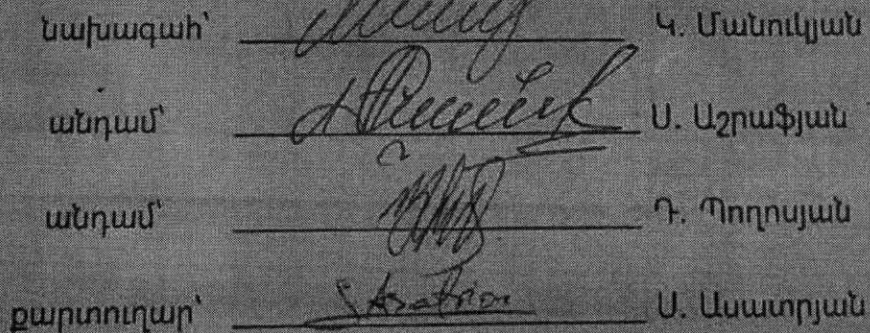 նախագահ՝ Կ. Մանուկյան
անդամ՝ Ս. Աշրաֆյան
անդամ՝ Դ. Պողոսյան
քարտուղար՝ Ս. Ասատրյան